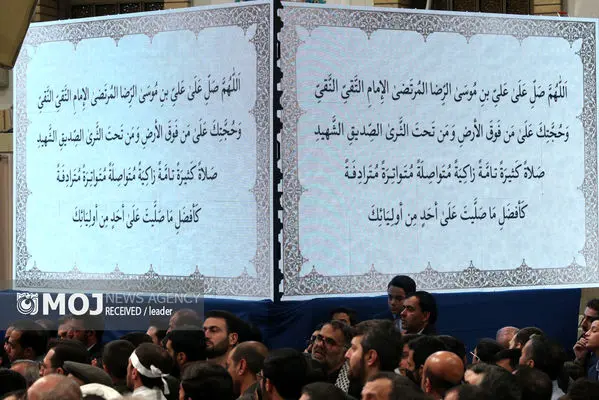 اَللّهُمَّ صَلِّ عَلى عَلِيِّ بنِ مُوسَى الرِّضا المُرتَضَى الإمامِ التَّقِيِّ النَّقِيِّ
وَحُجَّتِكَ عَلى مَن فَوقَ الأرضِ وَمَن تَحتَ الثَّرى الصِّدّيقِ الشَّهيدِ
صَلاةً كَثيرَةً تامَّةً زاكِيَةً مُتَواصِلَةً مُتَواتِرَةً مُتَرادِفَةً
كَأفضَلِ ما صَلَّيتَ عَلى أحَدٍ مِن أولِيائِكَ
اَللّهُمَّ صَلِّ عَلى عَلِيِّ بنِ مُوسَى الرِّضا المُرتَضَى الإمامِ التَّقِيِّ النَّقِيِّ
وَحُجَّتِكَ عَلى مَن فَوقَ الأرضِ وَمَن تَحتَ الثَّرى الصِّدّيقِ الشَّهيدِ
صَلاةً كَثيرَةً تامَّةً زاكِيَةً مُتَواصِلَةً مُتَواتِرَةً مُتَرادِفَةً
كَأفضَلِ ما صَلَّيتَ عَلى أحَدٍ مِن أولِيائِكَ
MOJ NEWS AGENCY
RECEIVED / leader